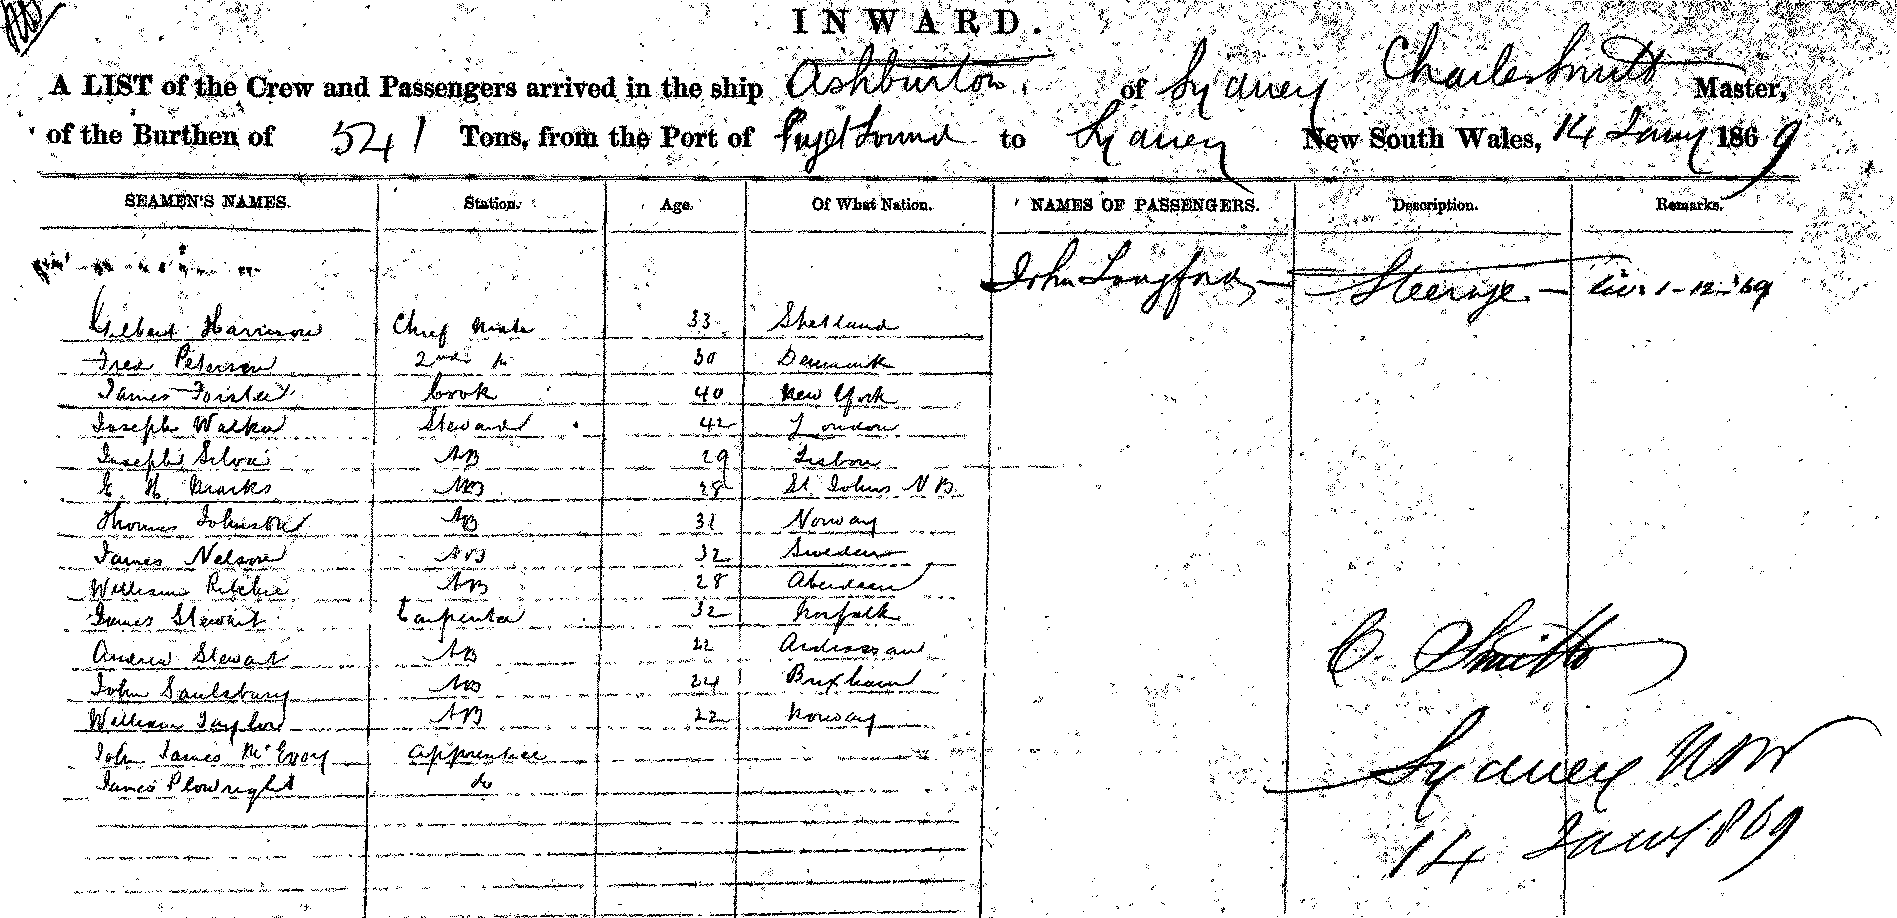 INWARD.
A LIST of the Crew and Passengers arrived in the ship Ashburton. of Sydney Charles Smith Master,
of the Burthen of 541 Tons, from the Port of Puget Sound to Sydney New South Wales, 14 Jany 1869
SEAMEN'S NAMES. Station. Age. Of What Nation. NAMES OF PASSENGERS. Description. Remarks.
John Longford Steerage 1-12-69
Gilbert Harrison Chief Mate 33 Shetland
Fred Peterson 2nd 30 Denmark
James Forster Cook 40 New York
Joseph Walker Steward 42 London
Joseph Silva AB 29 Lisbon
E H Marks AB 28 St Johns N B
Thomas Johnston AB 31 Norway
James Nelson AB 32 Sweden
William Ritchie AB 28 Aberdeen
James Stewart Carpenter 32 Norfolk
Andrew Stewart AB 22 Ardrossan
John Saulsbury AB 24 Brixham
William Taylor AB 22 Norway
John James McEvoy apprentice
James Plowright do
C. Smith
Sydney NSW
14 Jany 1869